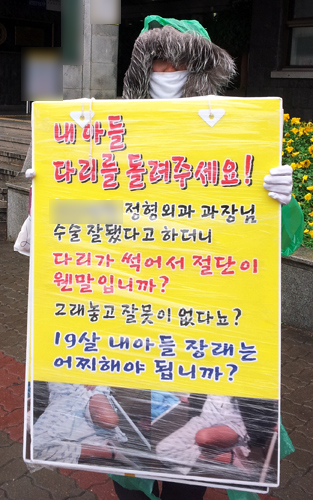 내 아들
다리를 돌려주세요!
정형외과 과장님
수술 잘됐다고 하더니
다리가 썩어서 절단이
웬말입니까?
그래놓고 잘못이 없다뇨?
19살 내아들 장래는
어찌해야 됩니까?